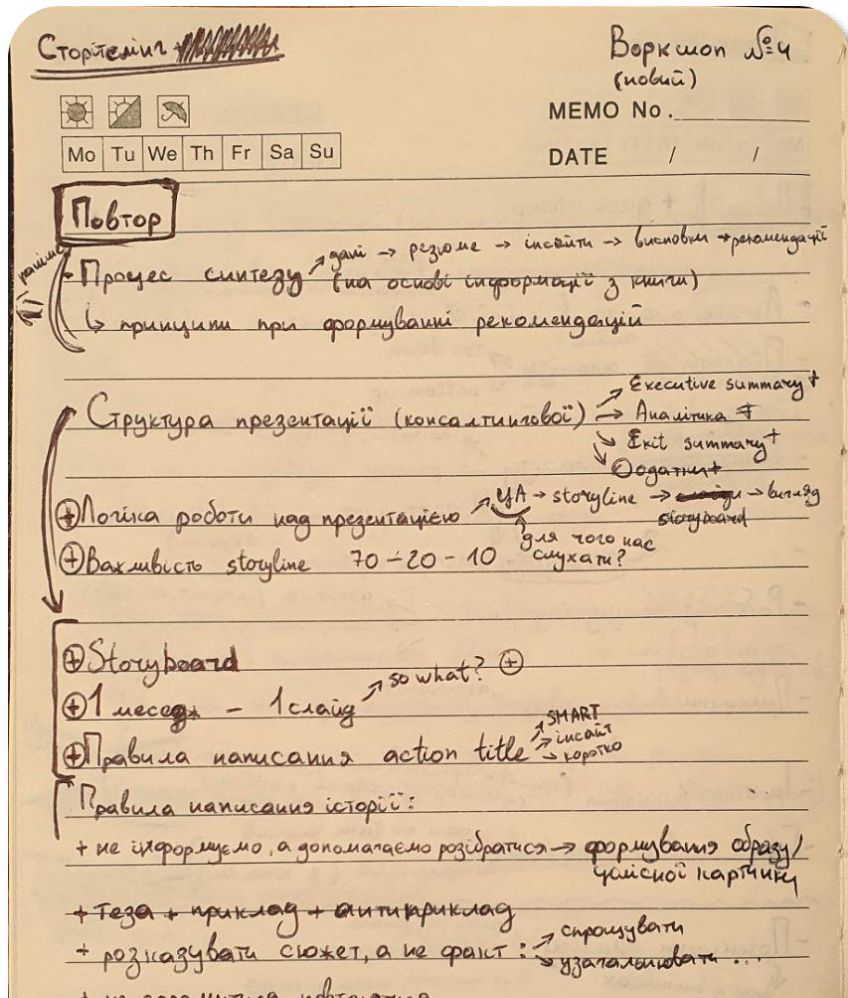 Сторітелінг
Воркшоп №4
(новий)
MEMO No.
Mo Tu We Th Fr Sa Su
DATE / /
Повтор
Процес синтезу → дані → резюме → інсайти → висновки → рекомендації
(на основі інформації з книги)
↳ принципи при формуванні рекомендацій
Структура презентації (консалтингової) → Executive summary +
→ Аналітика +
→ Exit summary +
→ Додатки +
⊕ Логіка роботи над презентацією → ЦА → storyline → слайди → вигляд
storyboard
для чого нас
слухати?
⊕ Важливість storyline 70-20-10
⊕ Storyboard
⊕ 1 меседж - 1 слайд → so what? ⊕
⊕ Правила написання action title → SMART
→ інсайт
→ коротко
Правила написання історії:
+ не інформуємо, а допомагаємо розібратися → формування образу/
цілісної картинки
+ теза + приклад + антиприклад
+ розказувати сюжет, а не факт: → спрощувати
→ узагальнювати ...